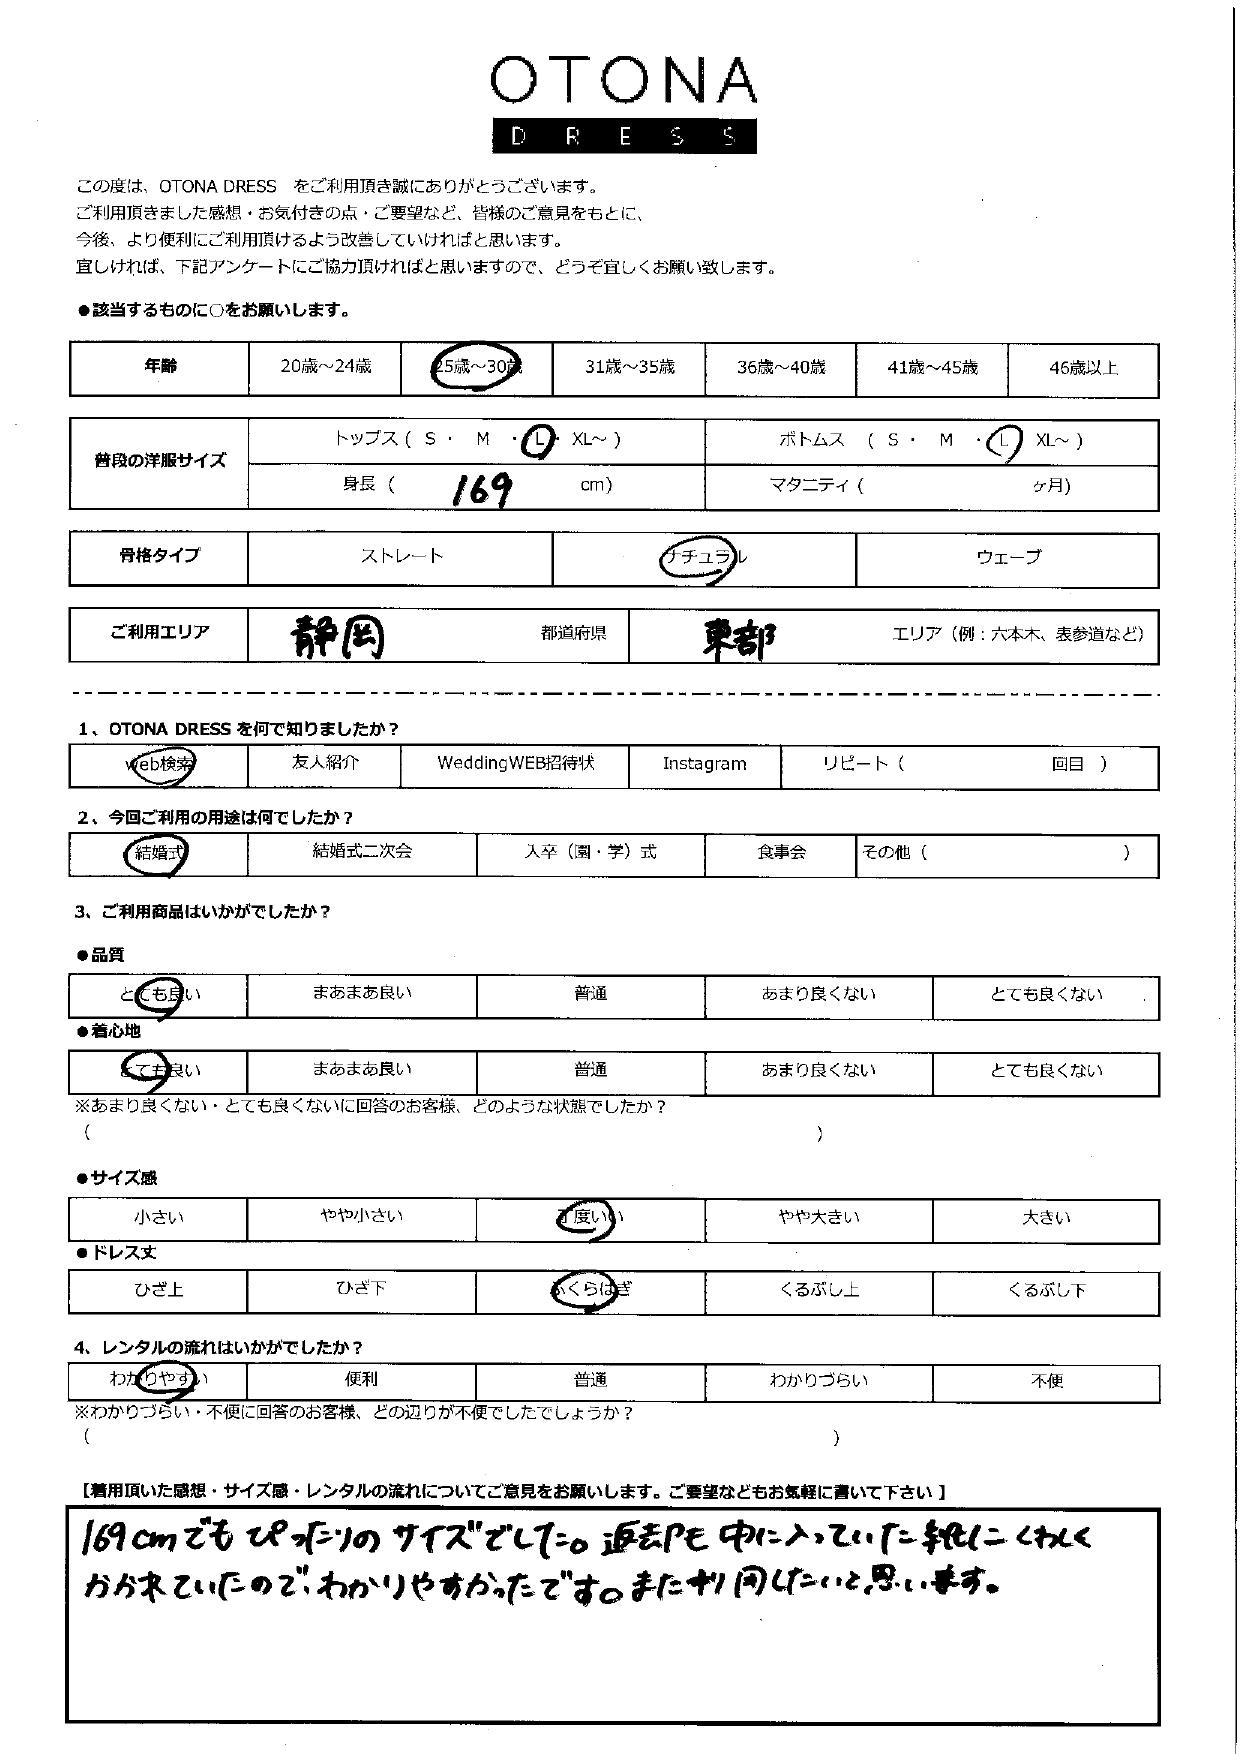 OTONA
DRESS
この度は、OTONA DRESS をご利用頂き誠にありがとうございます。
ご利用頂きました感想・お気付きの点・ご要望など、皆様のご意見をもとに、
今後、より便利にご利用頂けるよう改善していければと思います。
宜しければ、下記アンケートにご協力頂ければと思いますので、どうぞ宜しくお願い致します。
●該当するものに○をお願いします。
年齢 20歳～24歳 25歳～30歳 31歳～35歳 36歳～40歳 41歳～45歳 46歳以上
普段の洋服サイズ トップス ( S ・ M ・ L ・ XL～ ) ボトムス ( S ・ M ・ L XL～ )
身長 ( 169 cm) マタニティ ( ヶ月)
骨格タイプ ストレート ナチュラル ウェーブ
ご利用エリア 静岡 都道府県 東部 エリア（例：六本木、表参道など）
1、OTONA DRESS を何で知りましたか？
web検索 友人紹介 WeddingWEB招待状 Instagram リピート ( 回目 )
2、今回ご利用の用途は何でしたか？
結婚式 結婚式二次会 入卒（園・学）式 食事会 その他 ( )
3、ご利用商品はいかがでしたか？
●品質
とても良い まあまあ良い 普通 あまり良くない とても良くない
●着心地
とても良い まあまあ良い 普通 あまり良くない とても良くない
※あまり良くない・とても良くないに回答のお客様、どのような状態でしたか？
( )
●サイズ感
小さい やや小さい 丁度いい やや大きい 大きい
●ドレス丈
ひざ上 ひざ下 ふくらはぎ くるぶし上 くるぶし下
4、レンタルの流れはいかがでしたか？
わかりやすい 便利 普通 わかりづらい 不便
※わかりづらい・不便に回答のお客様、どの辺りが不便でしたでしょうか？
( )
[着用頂いた感想・サイズ感・レンタルの流れについてご意見をお願いします。ご要望などもお気軽に書いて下さい ]
169cmでも ぴったりの サイズでした。返却も 中に入っていた紙に くわしく
かかれていたので、わかりやすかったです。また利用したいと思います。